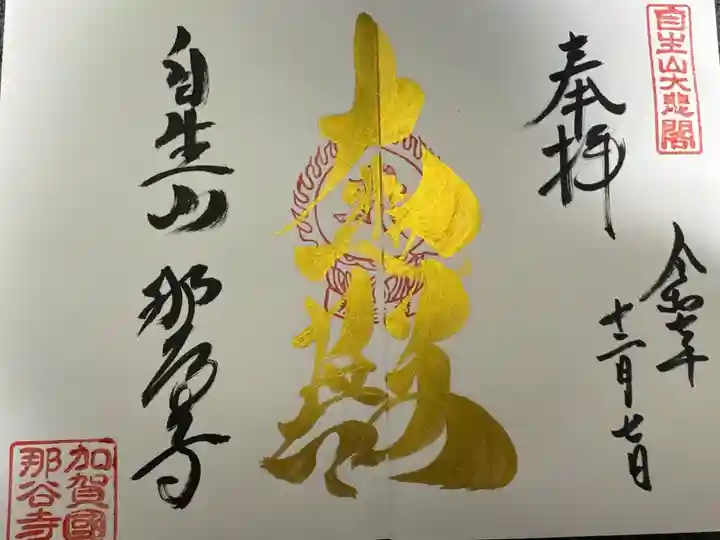 自生山大悲閣
奉拝
令和七年
十二月七日
大悲閣
自生山 那谷寺
加賀國
那谷寺